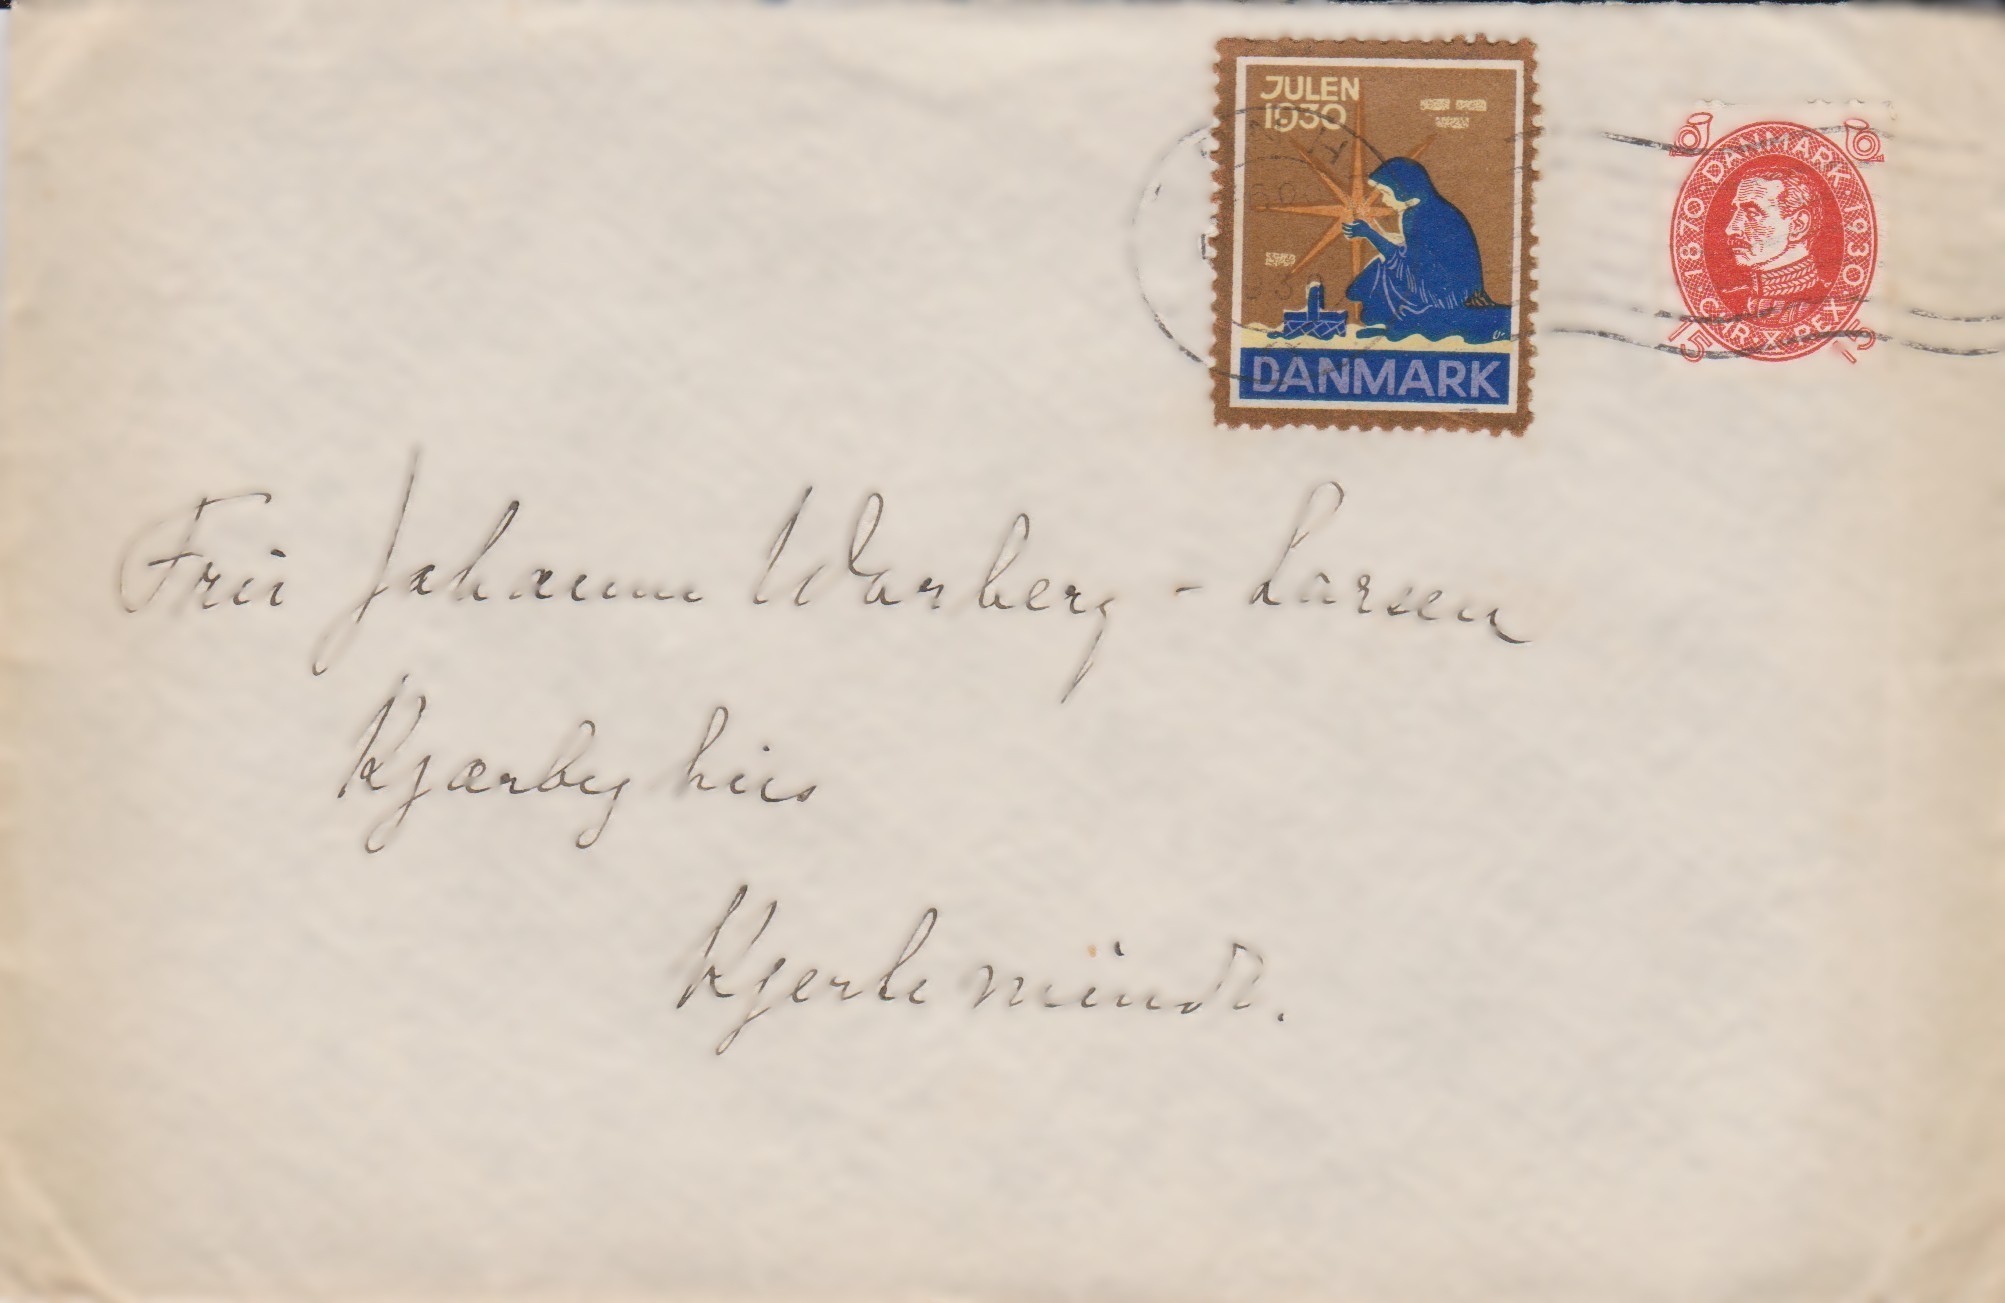 JULEN
1930
DANMARK
1870 · DANMARK · 1930
CHR · X · REX
15 15
Frü Johanne Warberg - Larsen
Kjærbyhüs
Kjerteminde.